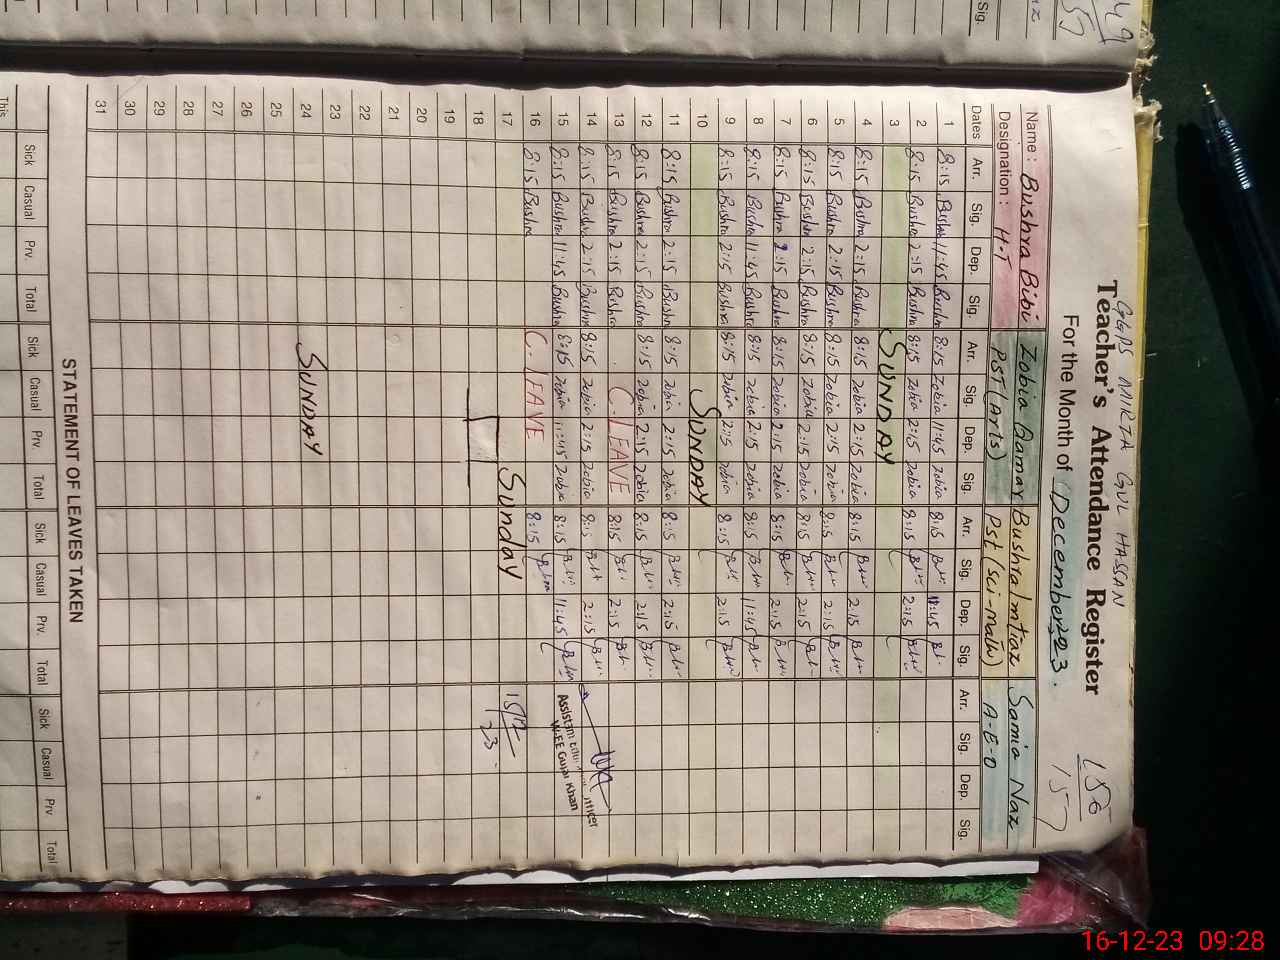 GGPS MIRZA GUL HASSAN
Teacher's Attendance Register
For the Month of December 2023.
156
157
Name: Bushra Bibi Zobia Qamar Bushra Imtiaz Samia Naz
Designation: H-T PST (Arts) Pst (sci-math) A-E-O
Dates Arr. Sig. Dep. Sig. Arr. Sig. Dep. Sig. Arr. Sig. Dep. Sig. Arr. Sig. Dep. Sig.
1 8:15 Bushra 11:45 Bushra 8:15 Zobia 11:45 Zobia 8:15 11:45
2 8:15 Bushra 2:15 Bushra 8:15 Zobia 2:15 Zobia 8:15 2:15
3 SUNDAY
4 8:15 Bushra 2:15 Bushra 8:15 Zobia 2:15 Zobia 8:15 2:15
5 8:15 Bushra 2:15 Bushra 8:15 Zobia 2:15 Zobia 8:15 2:15
6 8:15 Bushra 2:15 Bushra 8:15 Zobia 2:15 Zobia 8:15 2:15
7 8:15 Bushra 2:15 Bushra 8:15 Zobia 2:15 Zobia 8:15 2:15
8 8:15 Bushra 11:45 Bushra 8:15 Zobia 2:15 Zobia 8:15 11:45
9 8:15 Bushra 2:15 Bushra 8:15 Zobia 2:15 Zobia 8:15 2:15
10 SUNDAY
11 8:15 Bushra 2:15 Bushra 8:15 Zobia 2:15 Zobia 8:15 2:15
12 8:15 Bushra 2:15 Bushra 8:15 Zobia 2:15 Zobia 8:15 2:15
13 8:15 Bushra 2:15 Bushra C. LEAVE 8:15 2:15
14 8:15 Bushra 2:15 Bushra 8:15 Zobia 2:15 Zobia 8:15 2:15
15 8:15 Bushra 11:45 Bushra 8:15 Zobia 11:45 Zobia 8:15 11:45
Assistant Officer
W-EE Gujar Khan
16 8:15 Bushra C. LEAVE 8:15
17 Sunday 15/12/23
18
19
20
21
22
23
24 SUNDAY
25
26
27
28
29
30
31
STATEMENT OF LEAVES TAKEN
Sick Casual Prv. Total Sick Casual Prv. Total Sick Casual Prv. Total Sick Casual Prv Total
This
Sig.
16-12-23 09:28